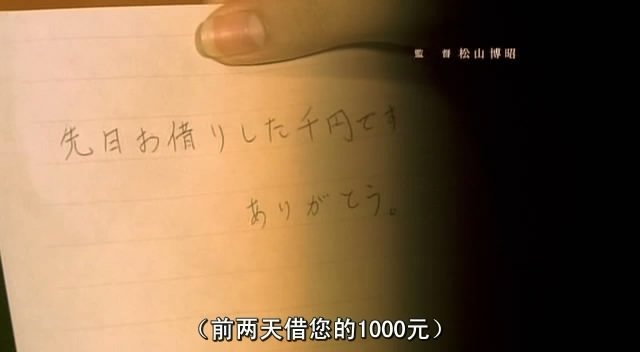 監 督 松山博昭
先日お借りした千円です
ありがとう。
（前两天借您的1000元）